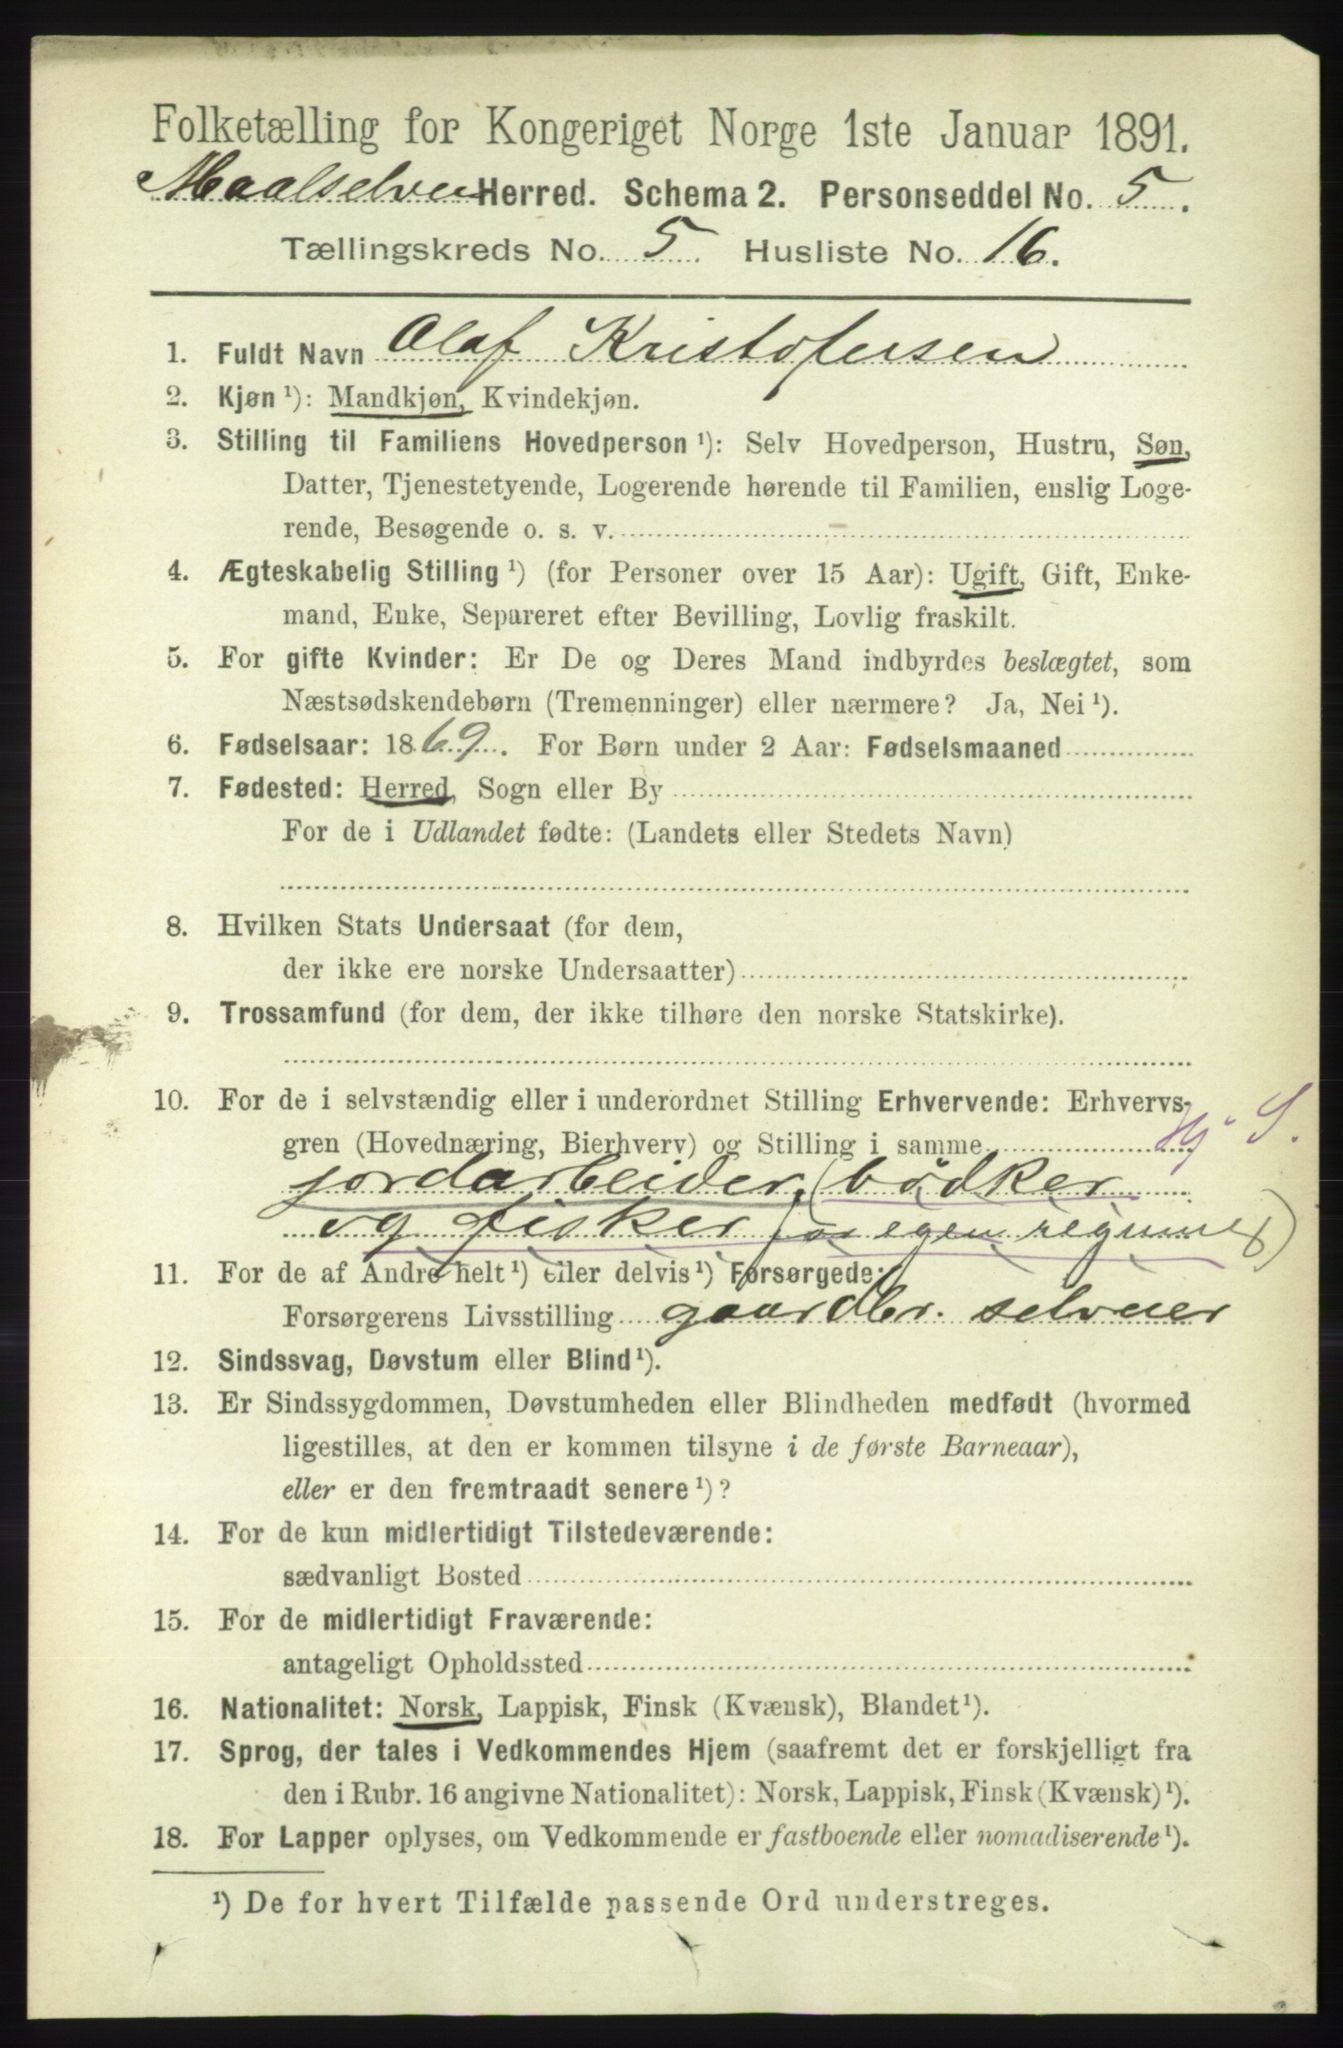 Folketælling for Kongeriget Norge 1ste Januar 1891.
Maalselven Herred. Schema 2. Personseddel No. 5.
Tællingskreds No. 5. Husliste No. 16.
1. Fuldt Navn Olaf Kristofersen
2. Kjøn ¹): Mandkjøn, Kvindekjøn.
3. Stilling til Familiens Hovedperson ¹): Selv Hovedperson, Hustru, Søn,
Datter, Tjenestetyende, Logerende hørende til Familien, enslig Loge-
rende, Besøgende o. s. v.
4. Ægteskabelig Stilling ¹) (for Personer over 15 Aar): Ugift, Gift, Enke-
mand, Enke, Separeret efter Bevilling, Lovlig fraskilt.
5. For gifte Kvinder: Er De og Deres Mand indbyrdes beslægtet, som
Næstsødskendebørn (Tremenninger) eller nærmere? Ja, Nei ¹).
6. Fødselsaar: 1869. For Børn under 2 Aar: Fødselsmaaned
7. Fødested: Herred, Sogn eller By
For de i Udlandet fødte: (Landets eller Stedets Navn)
8. Hvilken Stats Undersaat (for dem,
der ikke ere norske Undersaatter)
9. Trossamfund (for dem, der ikke tilhøre den norske Statskirke).
10. For de i selvstændig eller i underordnet Stilling Erhvervende: Erhvervs-
gren (Hovednæring, Bierhverv) og Stilling i samme Hj S.
jordarbeider, (bödker
og fisker for egen regning)
11. For de af Andre helt ¹) eller delvis ¹) Forsørgede:
Forsørgerens Livsstilling gaardbr. selveier
12. Sindssvag, Døvstum eller Blind ¹).
13. Er Sindssygdommen, Døvstumheden eller Blindheden medfødt (hvormed
ligestilles, at den er kommen tilsyne i de første Barneaar),
eller er den fremtraadt senere ¹)?
14. For de kun midlertidigt Tilstedeværende:
sædvanligt Bosted
15. For de midlertidigt Fraværende:
antageligt Opholdssted
16. Nationalitet: Norsk, Lappisk, Finsk (Kvænsk), Blandet ¹).
17. Sprog, der tales i Vedkommendes Hjem (saafremt det er forskjelligt fra
den i Rubr. 16 angivne Nationalitet): Norsk, Lappisk, Finsk (Kvænsk) ¹).
18. For Lapper oplyses, om Vedkommende er fastboende eller nomadiserende ¹).
¹) De for hvert Tilfælde passende Ord understreges.